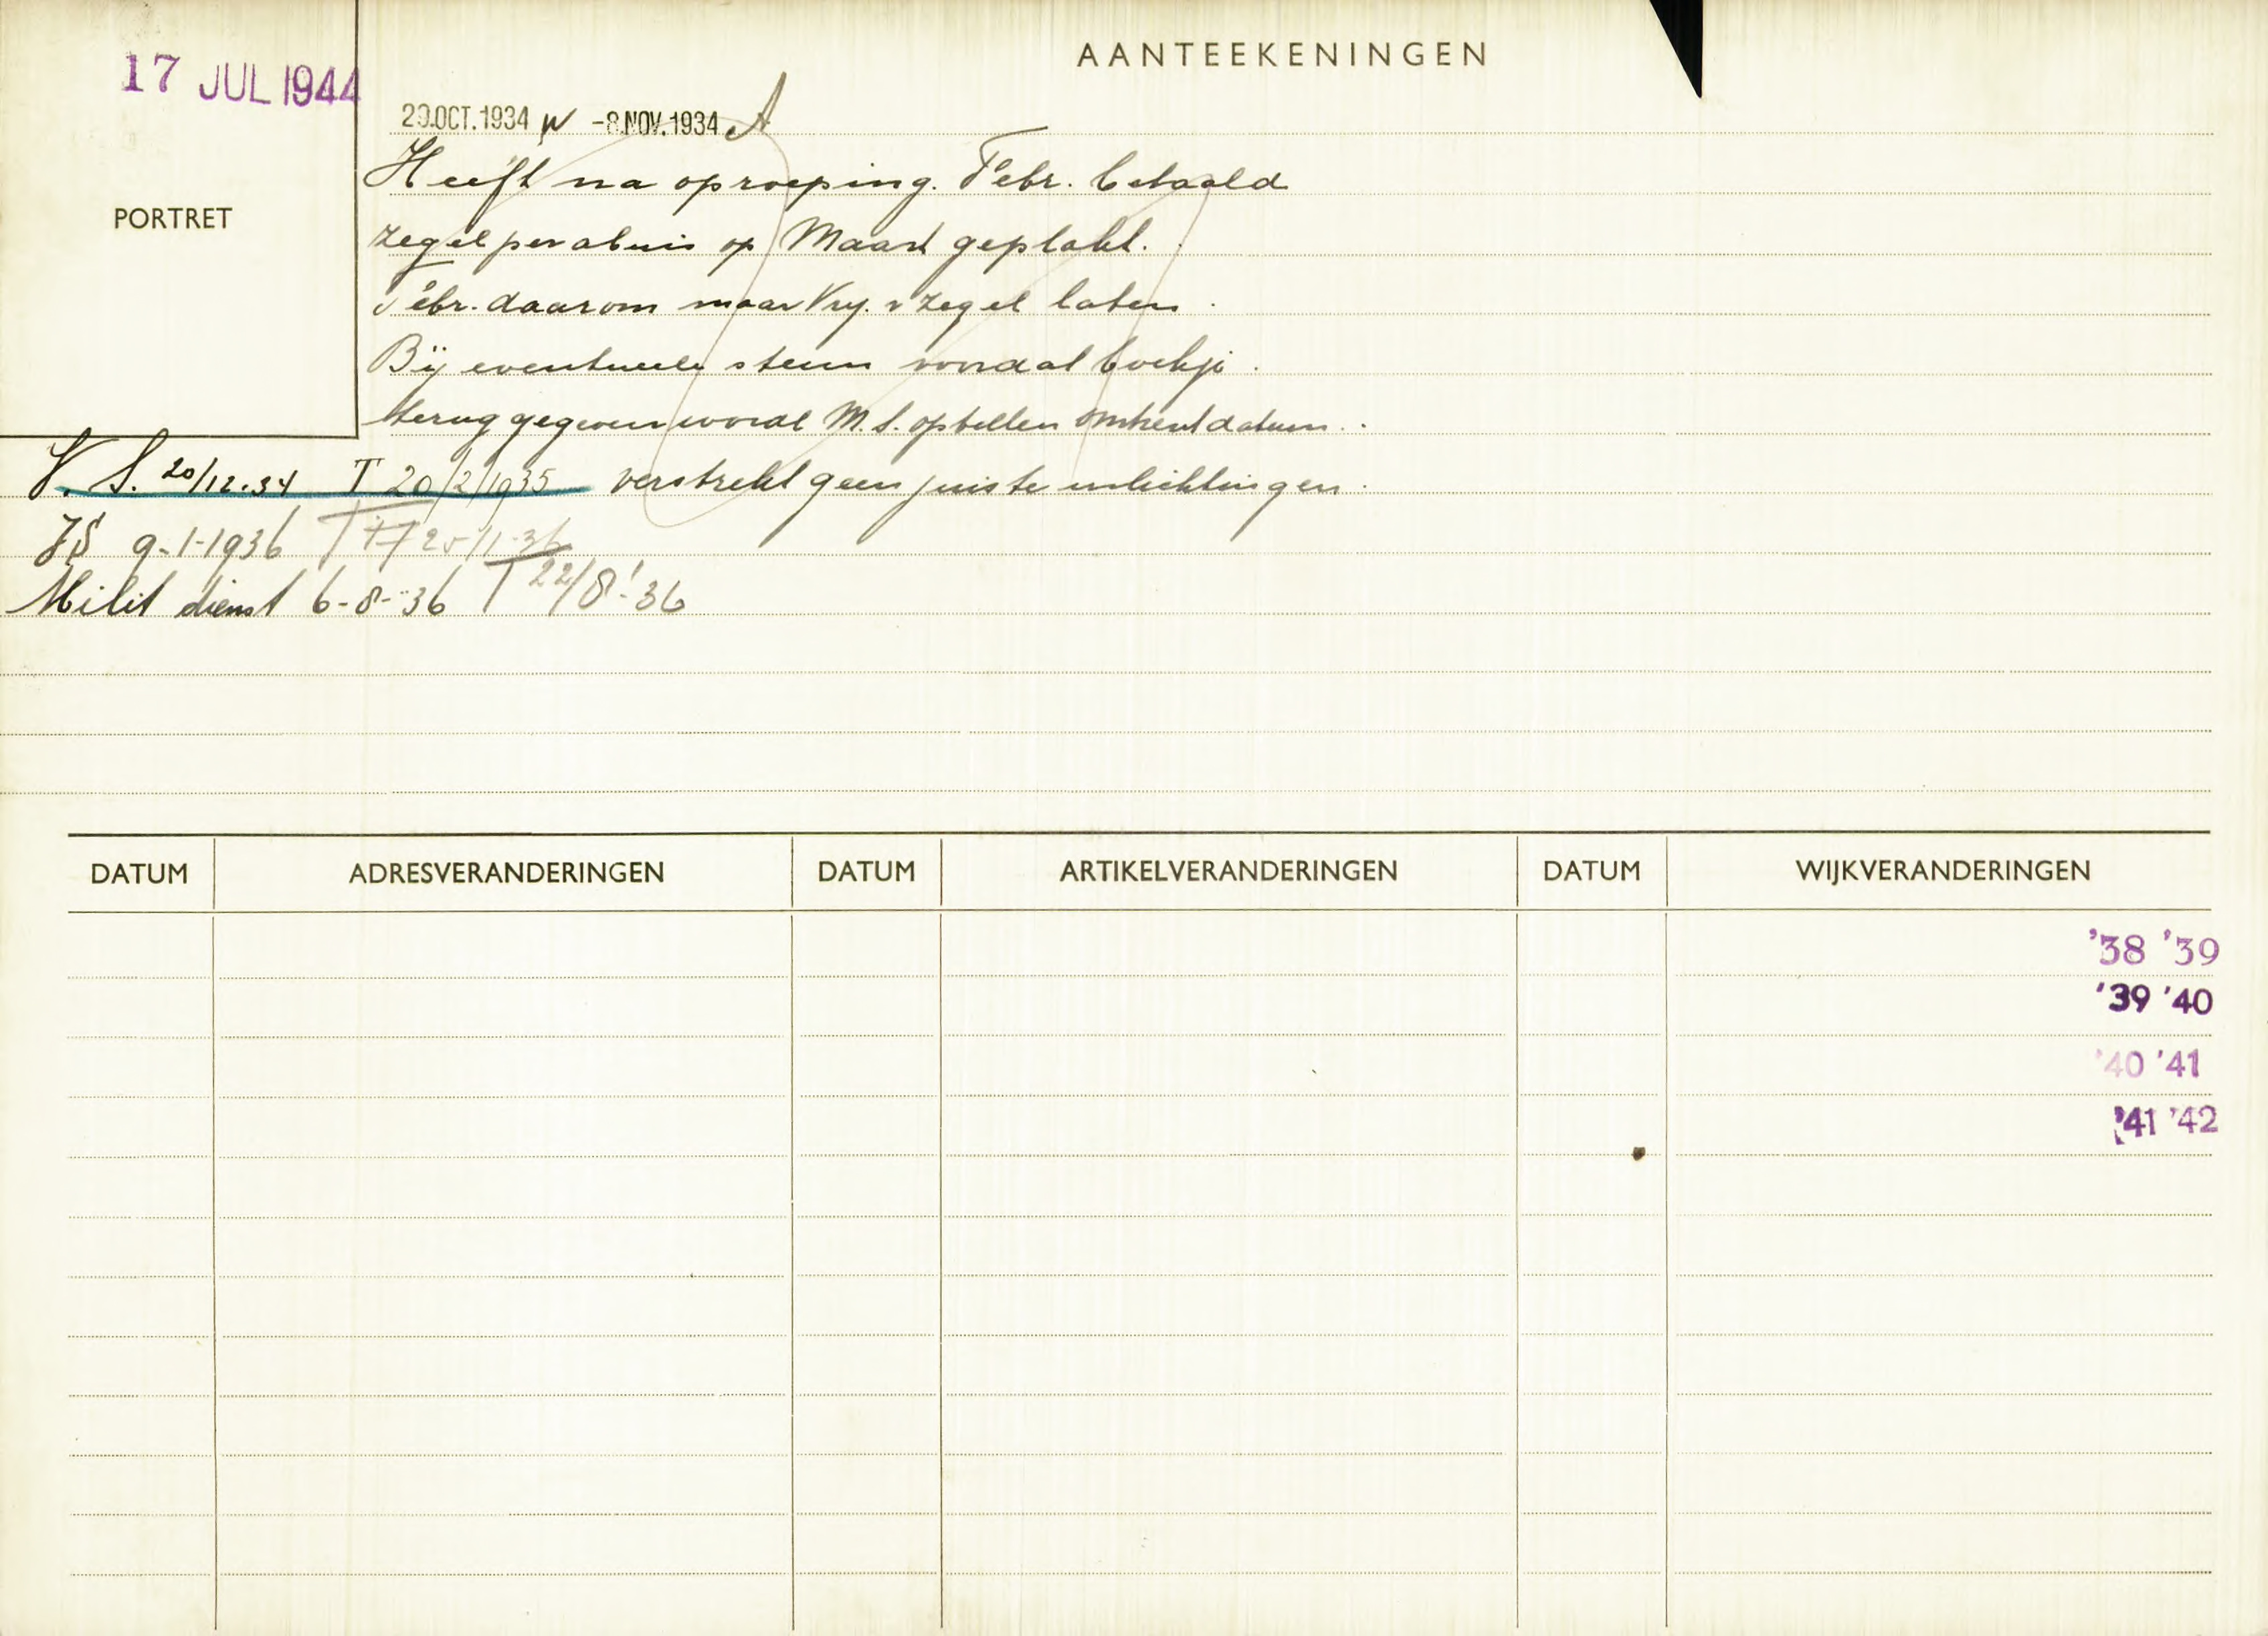 AANTEEKENINGEN
17 JUL 1944
PORTRET
29.OCT.1934 -8.NOV.1934 A
Heeft na oproeping. Febr. betaald
zegel per abuis op Maart geplakt.
Febr. daarom maar Vrij. v zegel laten.
Bij eventueele steun voordat boekje
terug gegeven wordt M.S. opbellen omtrent datum.
V. S. 20/12.34 T 20/2/1935 verstrekt geen juiste inlichtingen.
9-1-1936 T
Milit dienst 6-8-36 T 22/8'-36
DATUM ADRESVERANDERINGEN DATUM ARTIKELVERANDERINGEN DATUM WIJKVERANDERINGEN
'38 '39
'39 '40
'40 '41
'41 '42